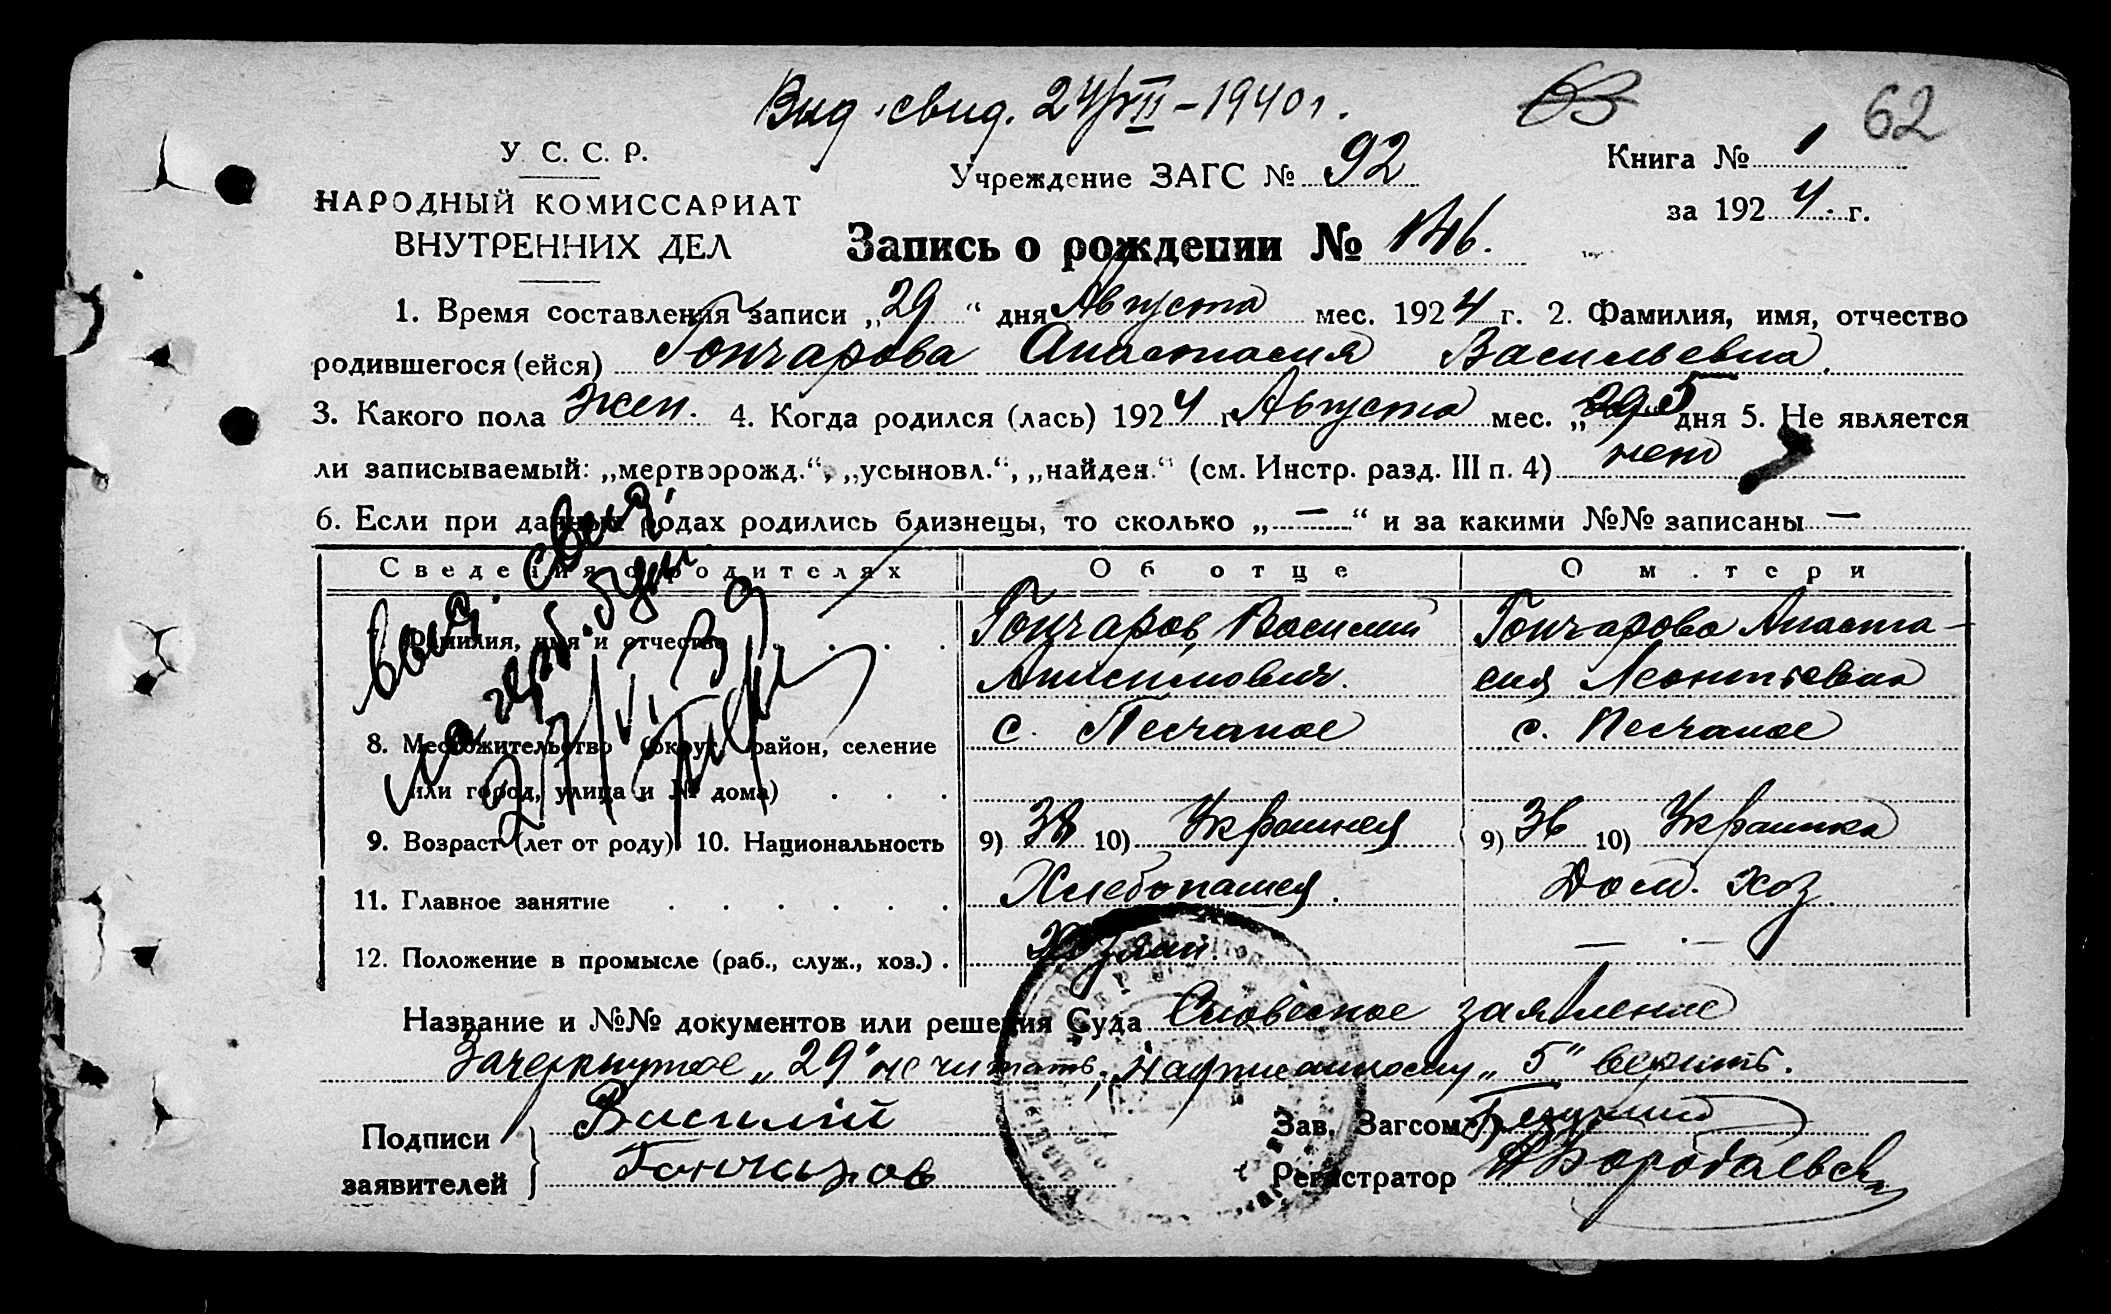 Выд. свид. 24/XII-1940 г.
63 62
У. С. С. Р.
НАРОДНЫЙ КОМИССАРИАТ
ВНУТРЕННИХ ДЕЛ
Учреждение ЗАГС № 92
Книга № 1
за 1924 г.
Запись о рождении № 146.
1. Время составления записи „29“ дня Августа мес. 1924 г. 2. Фамилия, имя, отчество
родившегося (ейся) Гончарова Анастасия Васильевна.
3. Какого пола жен. 4. Когда родился (лась) 1924 г. Августа мес. „29 5 дня 5. Не является
ли записываемый: „мертворожд.“, „усыновл.“, „найден.“ (см. Инстр. разд. III п. 4) нет
6. Если при данных родах родились близнецы, то сколько „—“ и за какими №№ записаны —
Сведения о родителях Об отце О матери
7. Фамилия, имя и отчество Гончаров Василий Гончарова Анаста-
Анисимович. сия Леонтьевна
8. Местожительство (округ, район, селение с. Песчаное с. Песчаное
или город, улица и № дома)
9. Возраст (лет от роду) 10. Национальность 9) 38 10) Украинец 9) 36 10) Украинка
11. Главное занятие Хлебопашец. Дом. хоз.
12. Положение в промысле (раб., служ., хоз.) Хозяин. — · —
Название и №№ документов или решения Суда Словесное заявление
Зачеркнутое „29“ не читать, надписанному „5“ верить.
Подписи Василий Зав. Загсом
заявителей Гончаров Регистратор